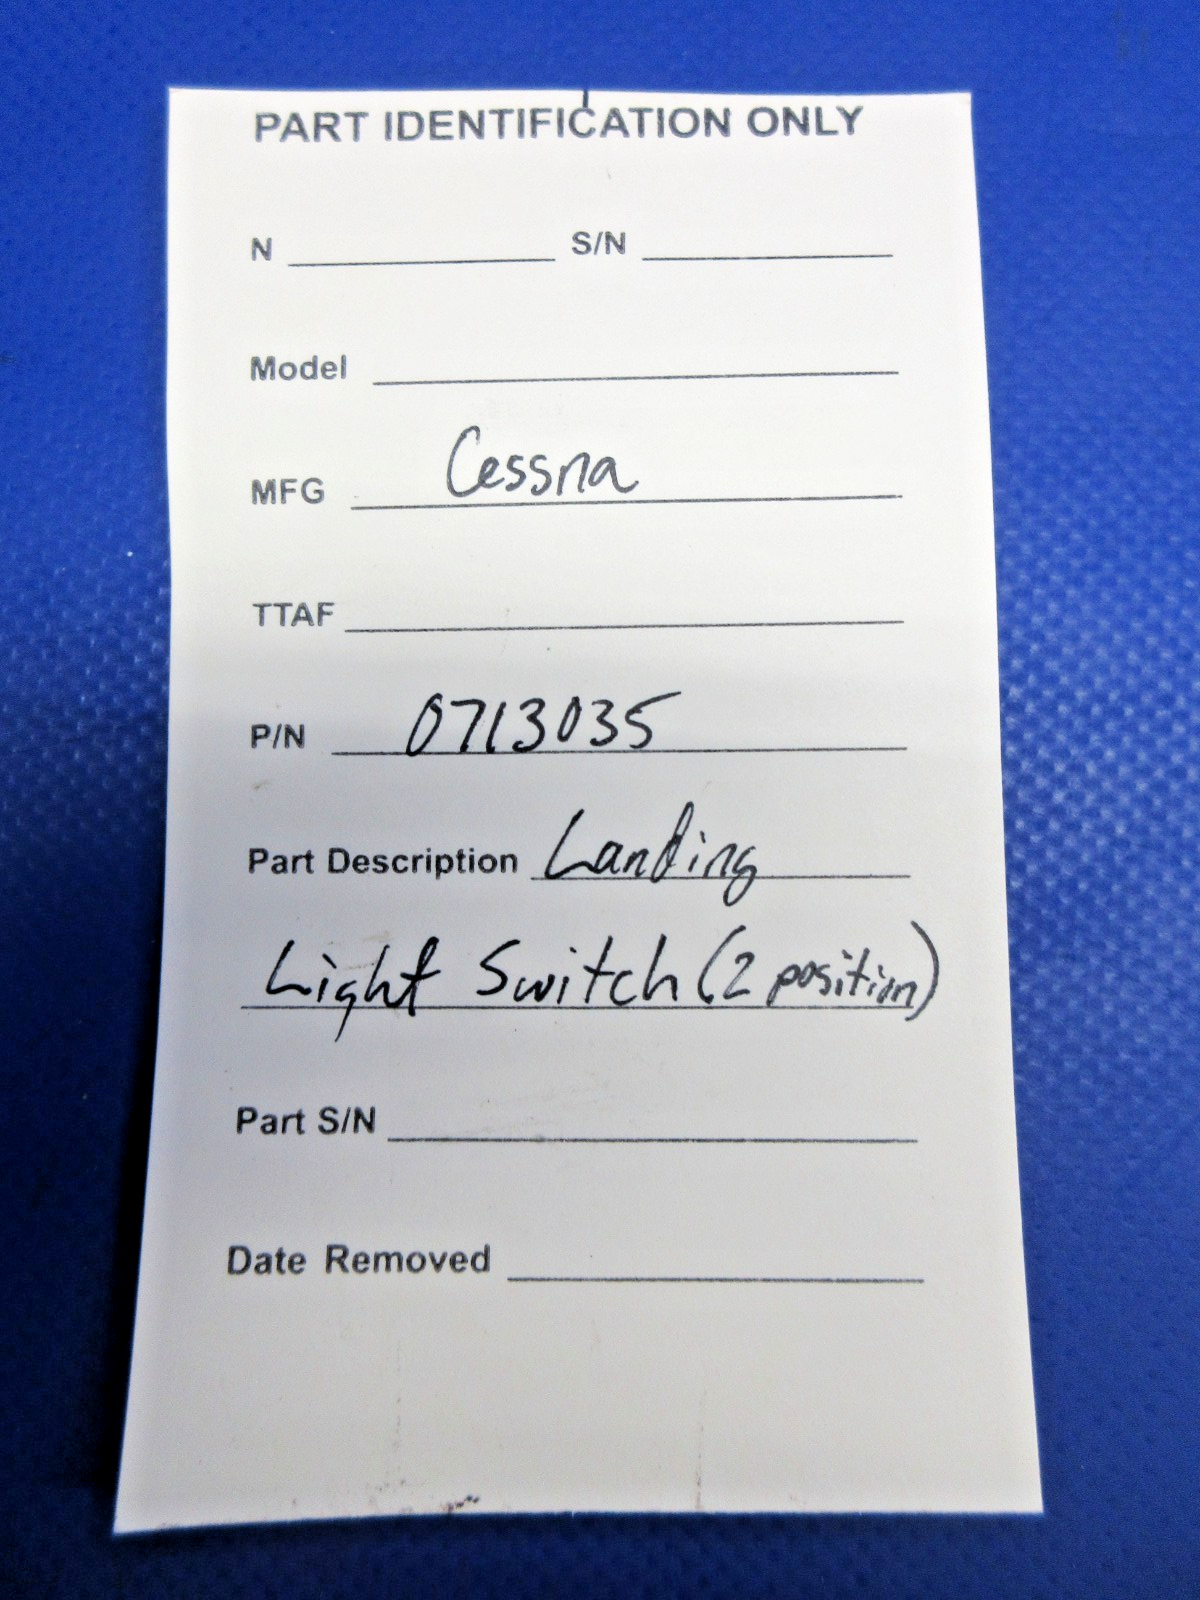 PART IDENTIFICATION ONLY
N S/N
Model
MFG Cessna
TTAF
P/N 0713035
Part Description Landing
Light Switch (2 position)
Part S/N
Date Removed